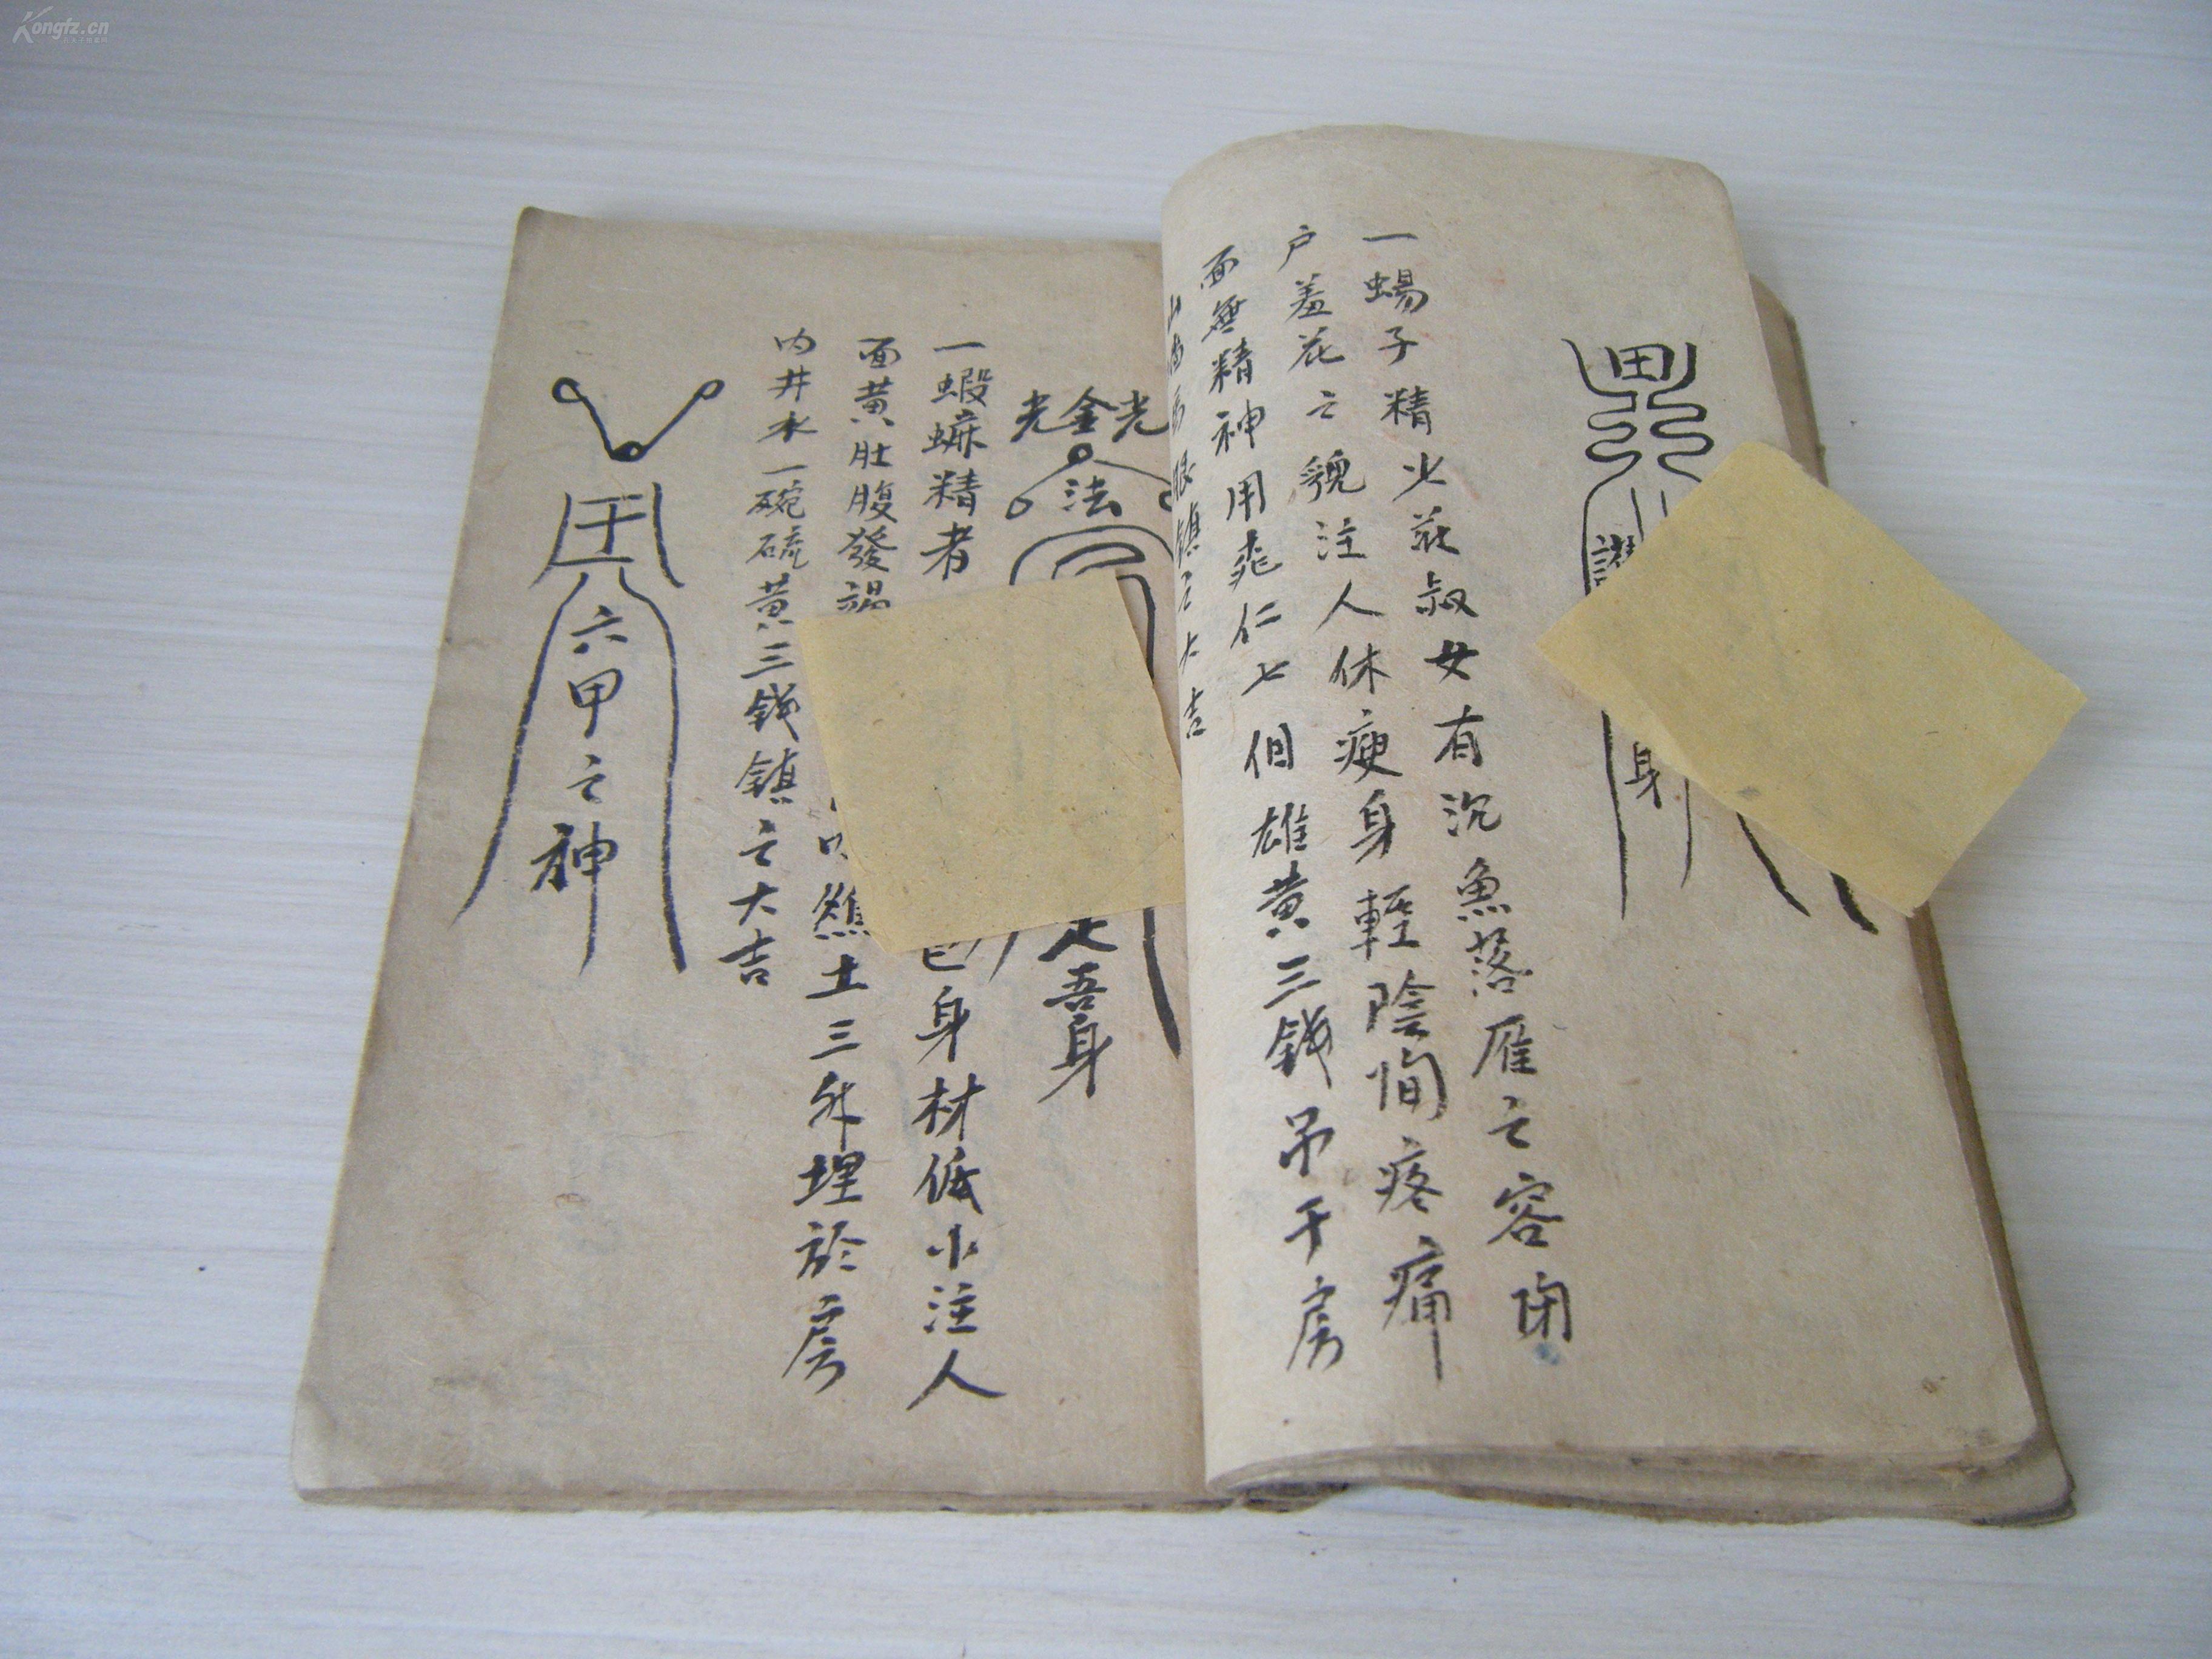 Kongfz.cn
田
護
身
一蝎子精少莊叔女有沉魚落雁之容閉
户羞花之貌注人休瘦身輕陰间疼痛
面無精神用桃仁七個雄黄三錢吊于房
鎮之大吉
光金光
法
定吾身
一蝦蟆精者
色身材低小注人
面黄肚腹發
土三升埋於房
内井水一碗硫黄三錢鎮之大吉
六甲之神